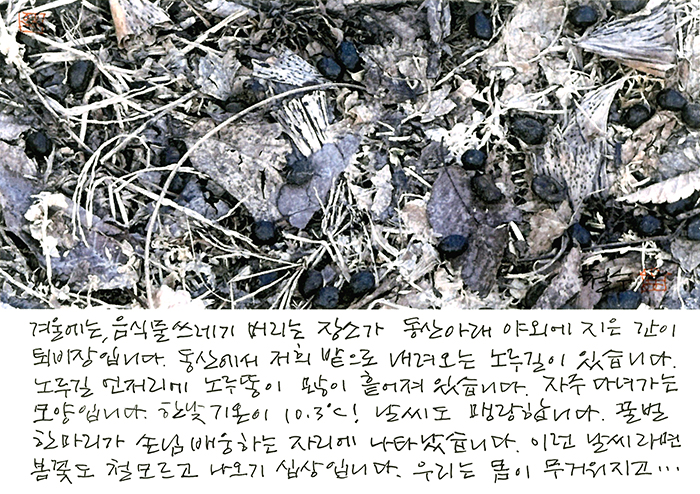 겨울에는, 음식물쓰레기 버리는 장소가 동산아래 야외에 지은 간이
퇴비장입니다. 동산에서 저희 밭으로 내려오는 노루길이 있습니다.
노루길 언저리에 노루똥이 많이 흩어져 있습니다. 자주 다녀가는
모양입니다. 한낮 기온이 10.3℃! 날씨도 맹랑합니다. 꿀벌
한마리가 손님 배웅하는 자리에 나타났습니다. 이런 날씨라면
봄꽃도 철모르고 나오기 십상입니다. 우리는 몸이 무거워지고…